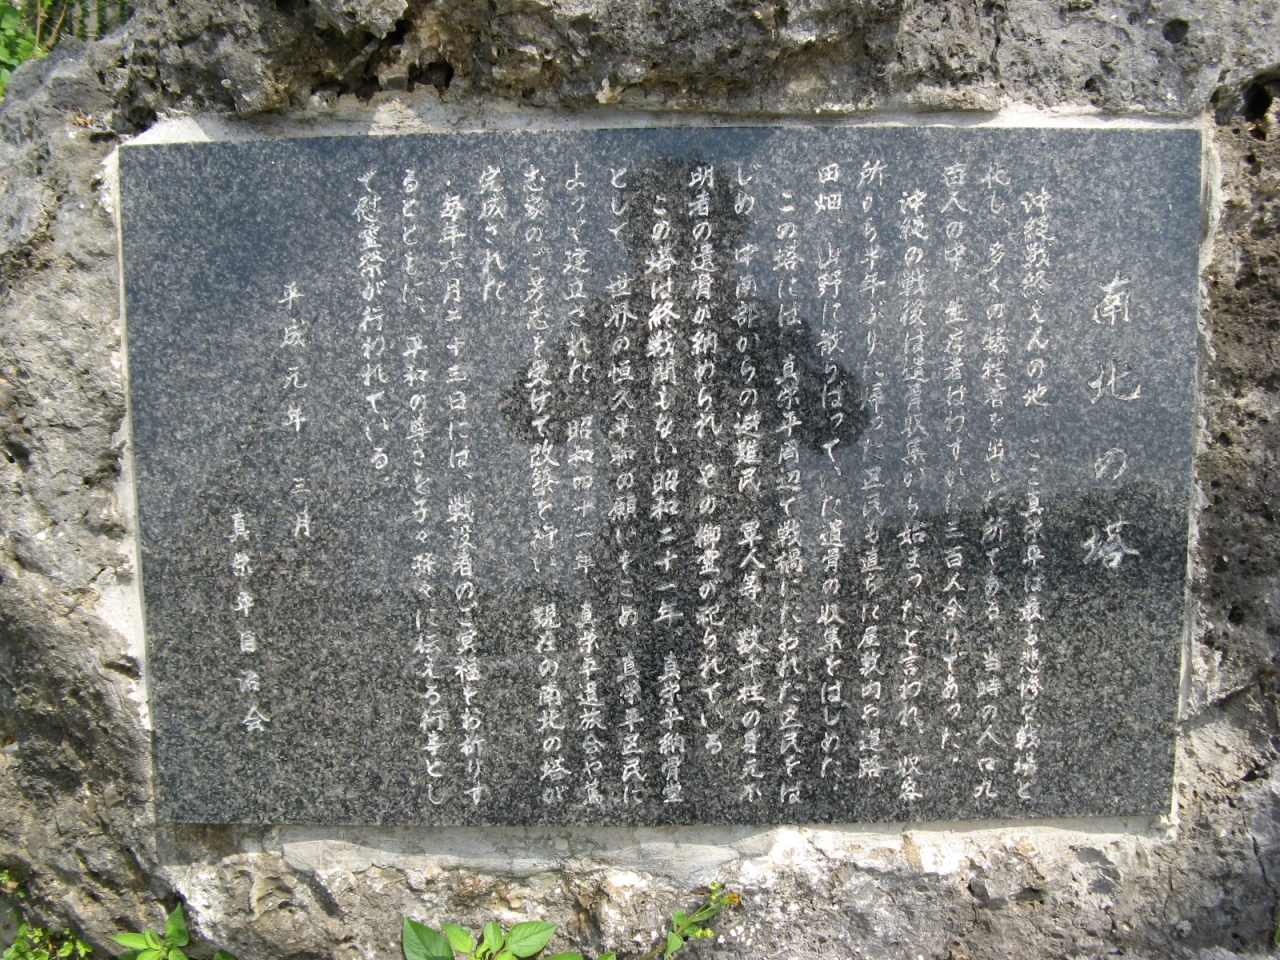 南北の塔
沖縄戦終えんの地 ここ真栄平は最も悲惨な戦場と
化し 多くの犠牲者を出した所である 当時の人口九
百人の中 生存者はわずかに三百人余りであった
沖縄の戦後は遺骨収集から始まったと言われ、収容
所から半年ぶりに帰った区民も直ちに屋敷内や道路
田畑 山野に散らばっていた遺骨の収集をはじめた
この塔には 真栄平周辺で戦禍にたおれた区民をは
じめ 中南部からの避難民 軍人等、数千柱の身元不
明者の遺骨が納められ その御霊が祀られている
この塔は終戦間もない昭和二十一年 真栄平納骨堂
として 世界の恒久平和の願いをこめ 真栄平区民に
よって建立された 昭和四十一年 真栄平遺族会や篤
志家のご芳志を受けて改築を行い 現在の南北の塔が
完成された
毎年六月二十三日には、戦没者のご冥福をお祈りす
るとともに、平和の尊さを子々孫々に伝える行事とし
て慰霊祭が行われている。
平成元年 三月
真栄平自治会